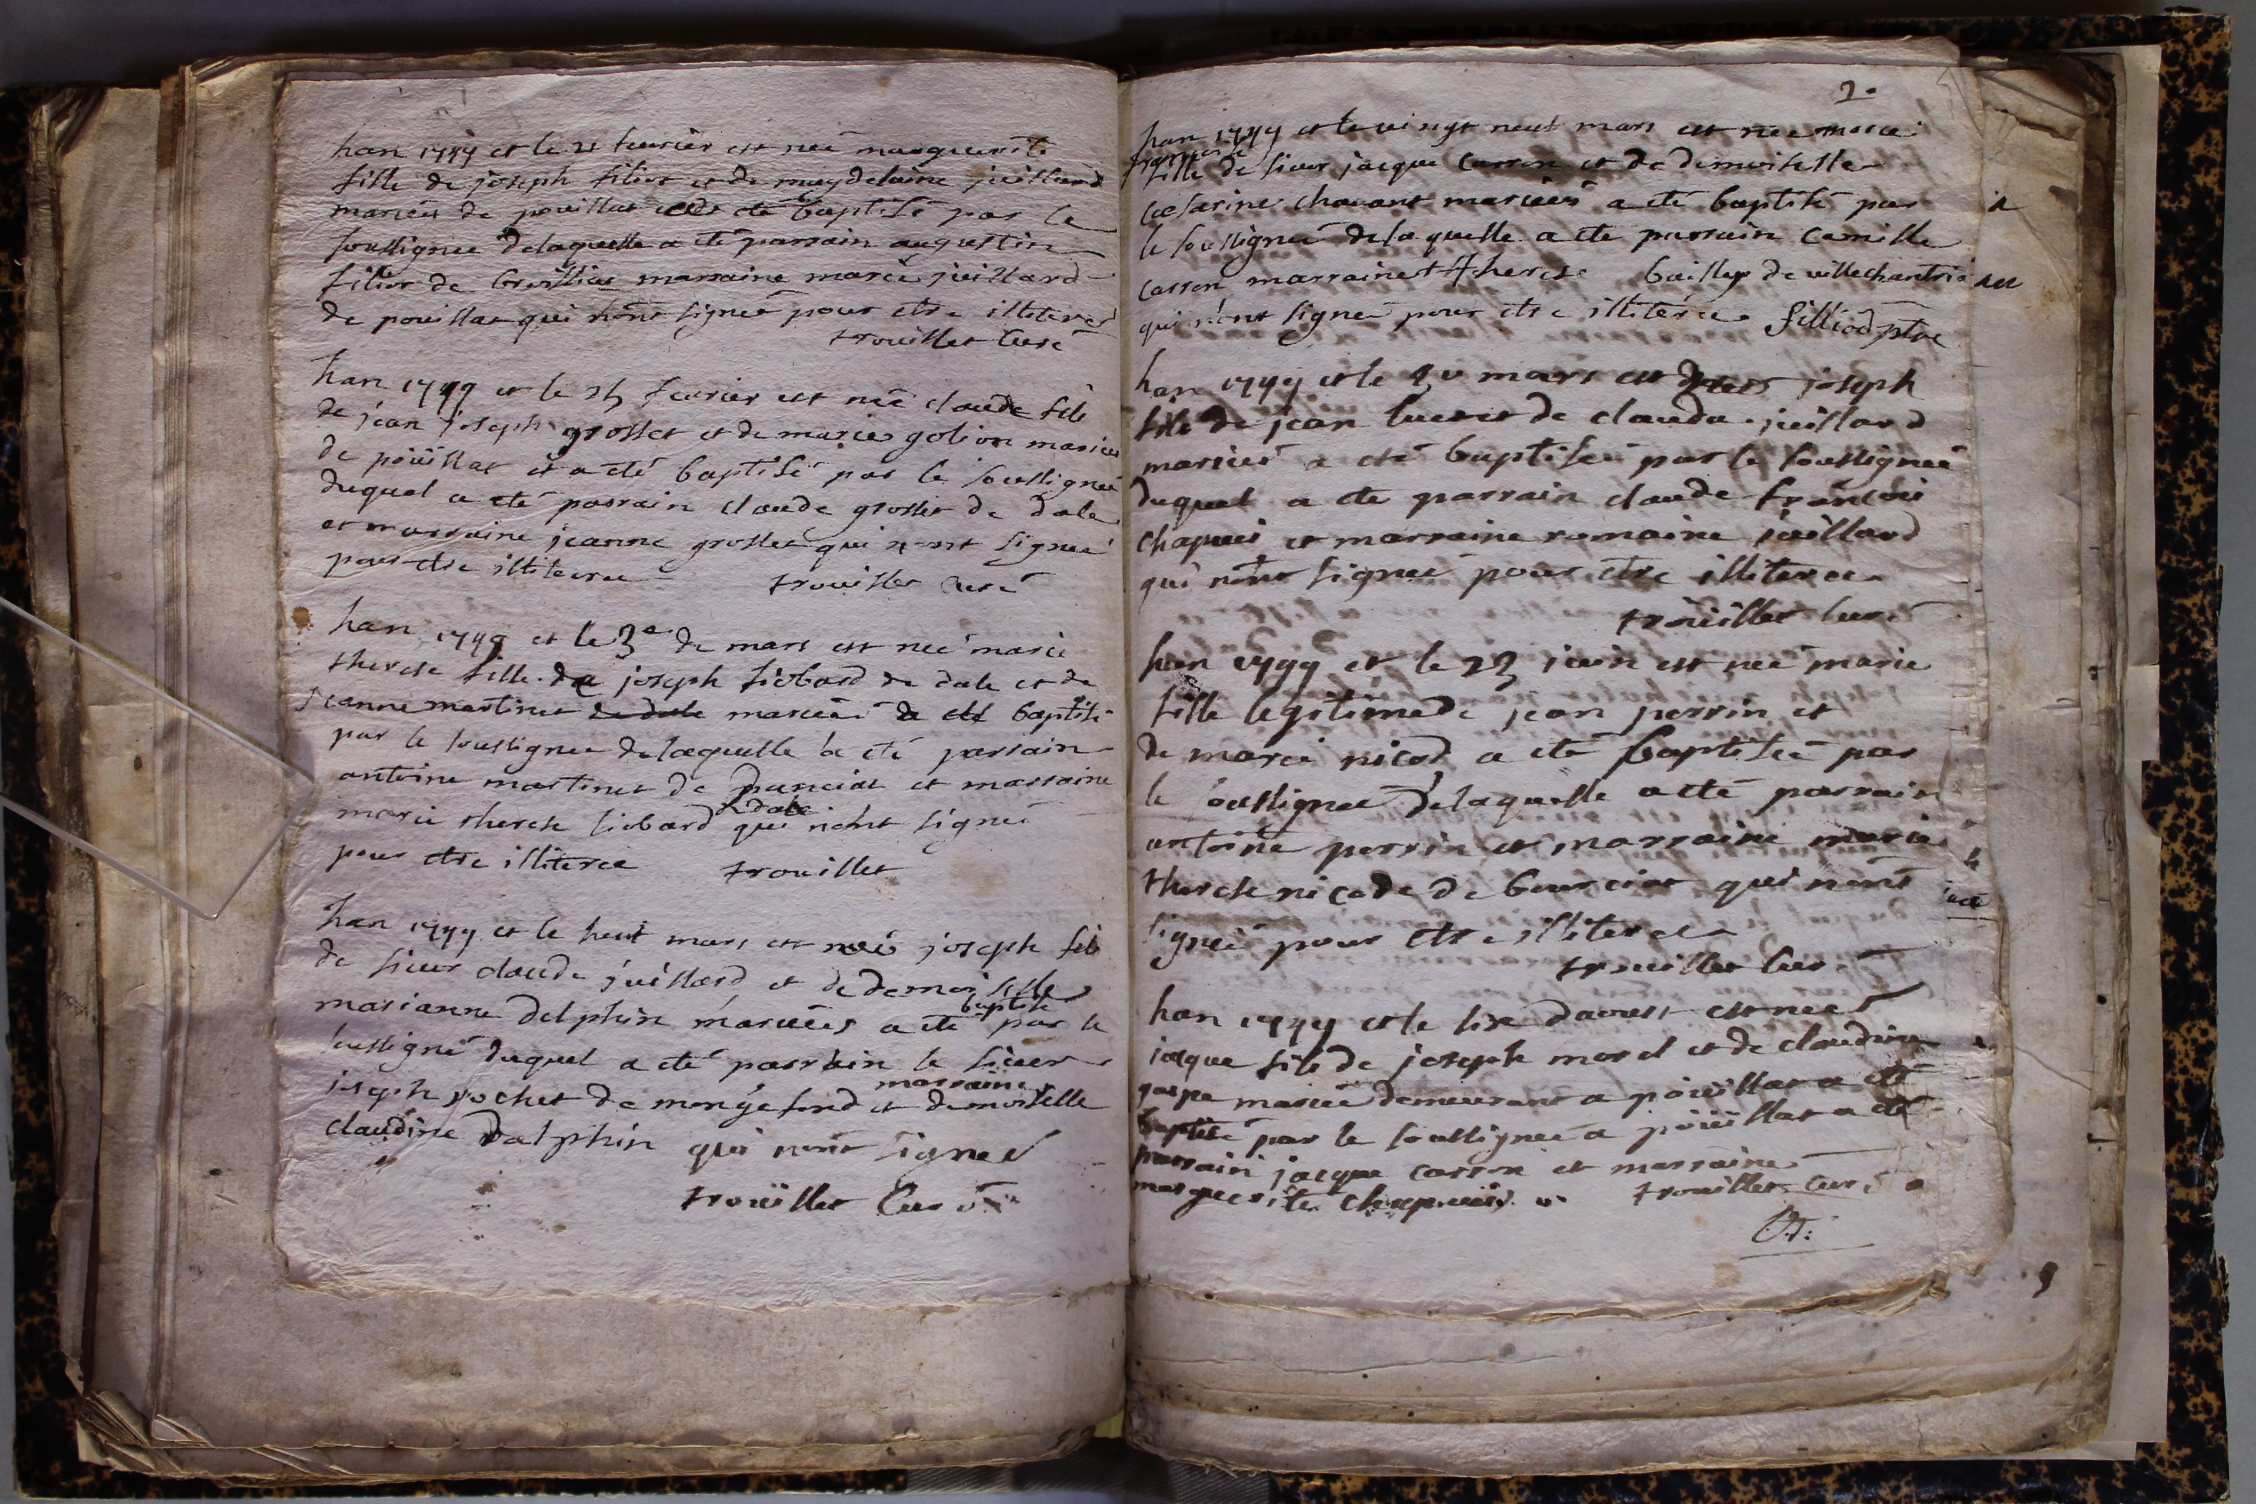 han 1749 et le 21 feurier est neé marguerite
fille de joseph filior et de magdelaine juillard
mariés de pouillat a eté baptisé par le
soussignee delaquelle a eté parrain augustin
filior de marraine marie juillard
de pouillat qui nont signeé pour etre illiteré
trouillet curé
han 1749 et le feurier est neé claude fils
de jean joseph grosset et de marie golion mariés
de poüillat et a eté baptisé par le soussigneé
duquel a eté parrain claude grosset de dole
et marraine jeanne grosset qui nont signeé
pour etre illiteree trouillet curé
han 1749 et le 3e de mars est neé marie
therese fille de joseph siobard de dole et de
jeanne martinet mariés a eté baptisé
par le soussignee delaquelle a eté parrain
antoine martinet de et marraine
dole
marie therese siobard qui nont signeé
pour etre illiteree trouillet
han 1749 et le huit mars est neé joseph fils
de sieur claude juillard et de demoiselle
baptisé
marianne delphin mariées a eté par le
soussigné duquel a eté parrain le sieur
marraine
joseph rochet de mongefond et demoiselle
claudine dalphin qui nont signeé
trouillet curé
2.
han 1749 et le vingt neuf mars est neé marie
françoise
fille de sieur jacque carron et de demoiselle
cesarine chavant mariées a eté baptisé par
le soussigneé delaquelle a eté parrain camille
carron marraine therese bailly de villechantria
qui nont signeé pour etre illiterée filliod ptre
han 1749 et le mars est joseph
fils de jean et de claude juillard
mariés a eté baptiseé par le soussigneé
duquel a eté parrain claude françois
chapuis et marraine romaine juillard
qui nont signeé pour etre illiteree
trouillet curé
han 1749 et le 23 juin est neé marie
fille legitime de jean perrin et
de marie nicod a eté baptiseé par
le soussignee delaquelle a eté parrain
antoine perrin et marraine marie
therese nicode de bourcia qui nont
signeé pour etre illiteree
trouillet curé
han 1749 et le six daoust est neé
jaque fils de joseph morel et de claudine
gaspe marieé demeurant a poüillat a eté
baptisé par le soussigneé a poüillat a eté
parrain jacque carron et marraine
marguerite chapuis trouillet curé